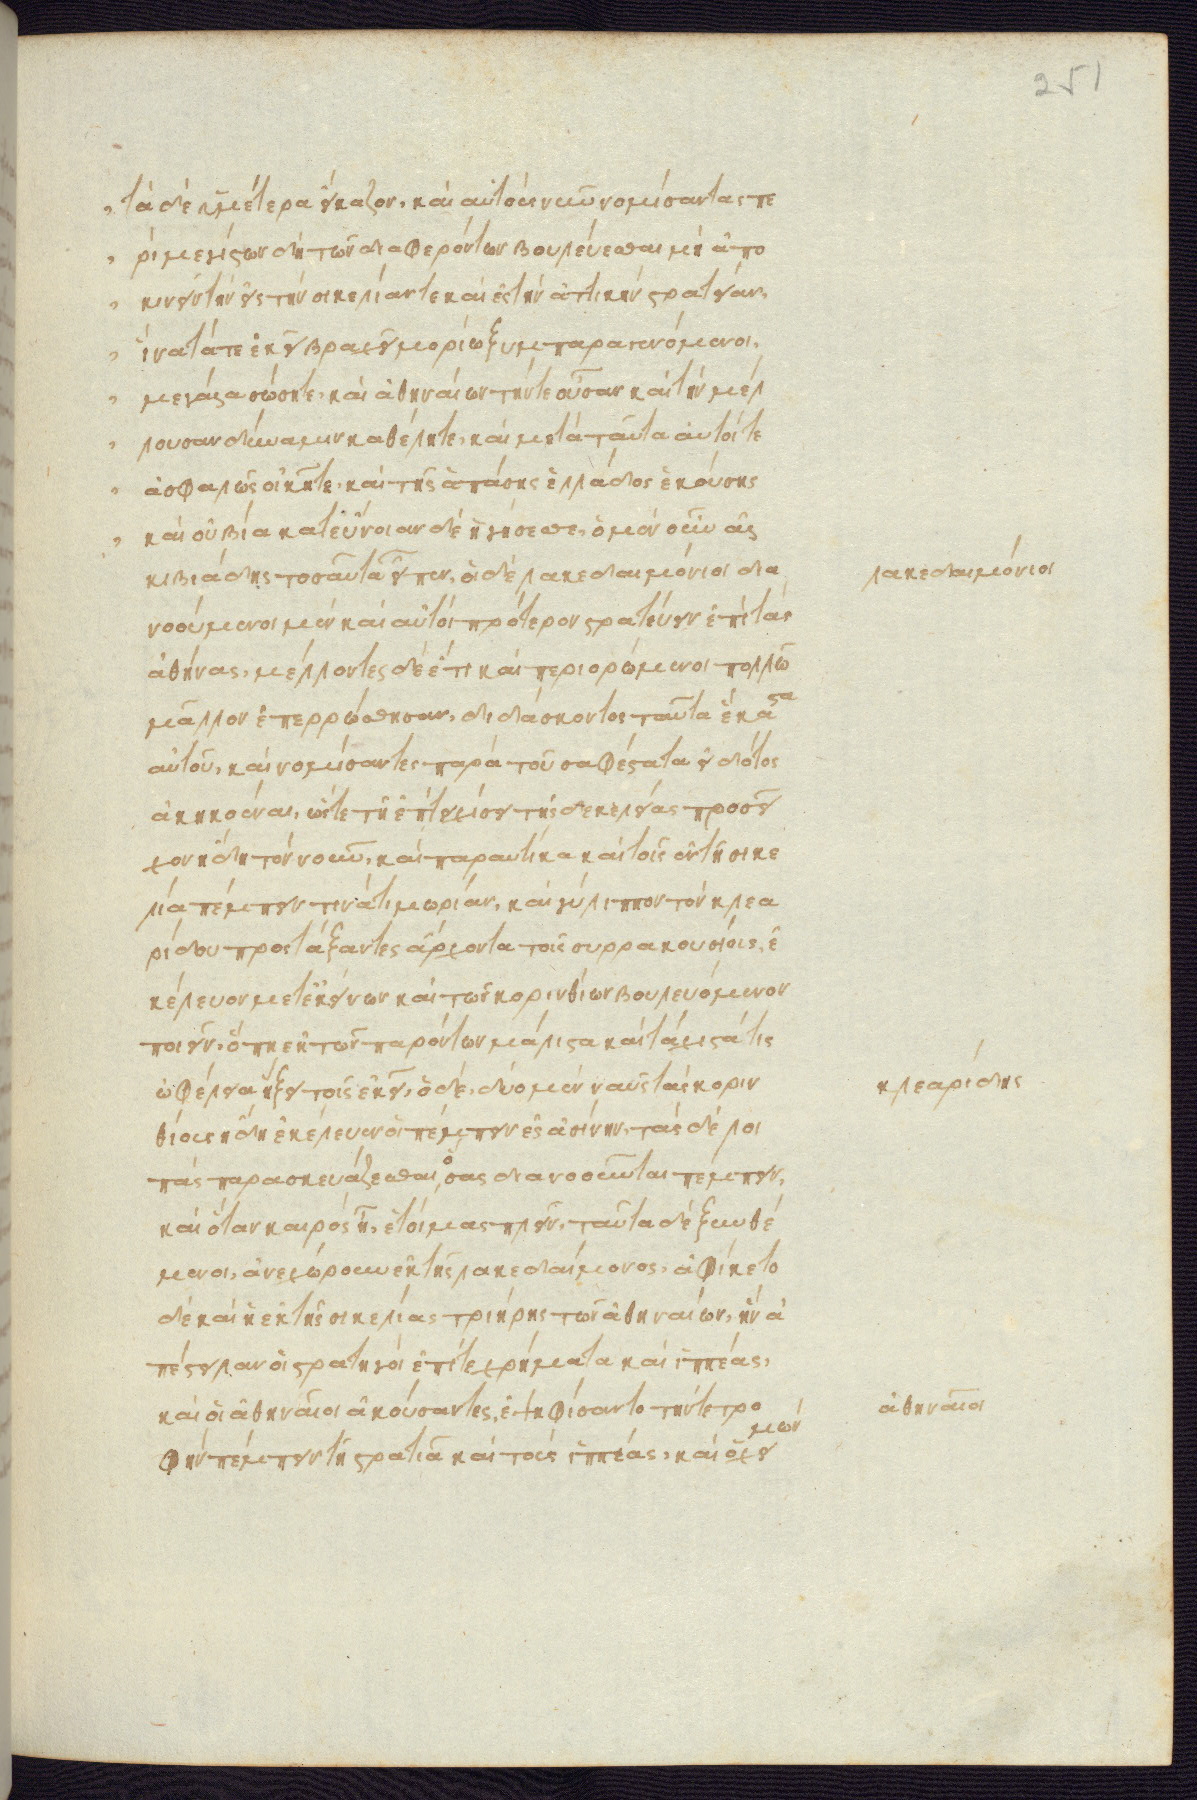 251
τὰ δὲ ὑμέτερα εἴκαζον, καὶ αὐτοὺς νῦν νομίσαντας πε
ρὶ μεγίστων δὴ τῶν διαφερόντων βουλεύεσθαι μὴ ἀπο
κνεῖν τὴν ἐς τὴν σικελίαν τε καὶ ἐς τὴν ἀττικὴν στρατείαν,
ἵνα τά τε ἐκεῖ βραχεῖ μορίω ξυμπαραγενόμενοι,
μεγάλα σώσητε, καὶ ἀθηναίων τήν τε οὖσαν καὶ τὴν μέλ
λουσαν δύναμιν καθέλητε, καὶ μετὰ ταῦτα αὐτοί τε
ἀσφαλῶς οἰκῆτε, καὶ τῆς ἁπάσης ἑλλάδος ἑκούσης
καὶ οὐ βία κατ' εὔνοιαν δὲ ἡγήσεσθε, ὁ μὲν οὖν ἀλ
κιβιάδης τοσαῦτα εἶπεν, οἱ δὲ λακεδαιμόνιοι δια
λακεδαιμόνιοι
νοούμενοι μὲν καὶ αὐτοὶ πρότερον στρατεύειν ἐπὶ τὰς
ἀθήνας, μέλλοντες δὲ ἔτι καὶ περιορώμενοι πολλῶ
μᾶλλον ἐπερρώσθησαν, διδάσκοντος ταῦτα ἕκαστα
αὐτοῦ, καὶ νομίσαντες παρὰ τοῦ σαφέστατα εἰδότος
ἀκηκοέναι, ὥστε τῆ ἐπιτειχίσει τῆς δεκελείας προσεῖ
χον ἤδη τὸν νοῦν, καὶ παραυτίκα καὶ τοῖς ἐν τῆ σικε
λία πέμπειν τινὰ τιμωρίαν, καὶ γύλιππον τὸν κλεα
ρίδου προστάξαντες ἄρχοντα τοῖς συρρακουσίοις, ἐ
κέλευον μετ' ἐκείνων καὶ τῶν κορινθίων βουλευόμενον
ποιεῖν, ὅπη ἐκ τῶν παρόντων μάλιστα καὶ τάχιστά τις
ὠφέλεια ἥξει τοῖς ἐκεῖ, ὁ δὲ, δύο μὲν ναῦς τοὺς κοριν
κλεαρίδης
θίους ἤδη ἐκέλευεν οἱ πέμπειν ἐς ἀσίνην, τὰς δὲ λοι
πὰς παρασκευάζεσθαι ὅσας διανοοῦνται πέμπειν,
καὶ ὅταν καιρὸς ἦ, ἑτοίμας πλεῖν, ταῦτα δὲ ξυνθέ
μενοι, ἀνεχώρουν ἐκ τῆς λακεδαίμονος, ἀφίκετο
δὲ καὶ ἡ ἐκ τῆς σικελίας τριήρης τῶν ἀθηναίων, ἣν ἀ
πέστειλαν οἱ στρατηγοὶ ἐπί τε χρήματα καὶ ἱππέας,
καὶ οἱ ἀθηναῖοι ἀκούσαντες, ἐψηφίσαντο τήν τε τρο
ἀθηναῖοι
φὴν πέμπειν τῆ στρατιᾶ καὶ τοὺς ἱππέας, καὶ ὁ χει
μὼν